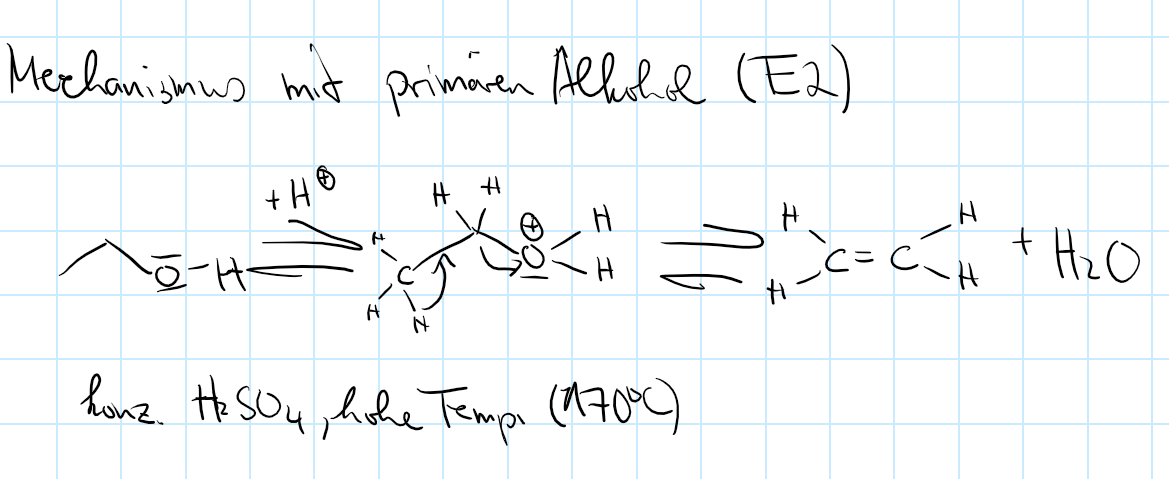 Mechanismus mit primären Alkohol (E2)
+H⊕
H H
H ⊕ H H H
O-H C O C=C + H2O
H H H H H
konz. H2SO4, hohe Temp. (170°C)